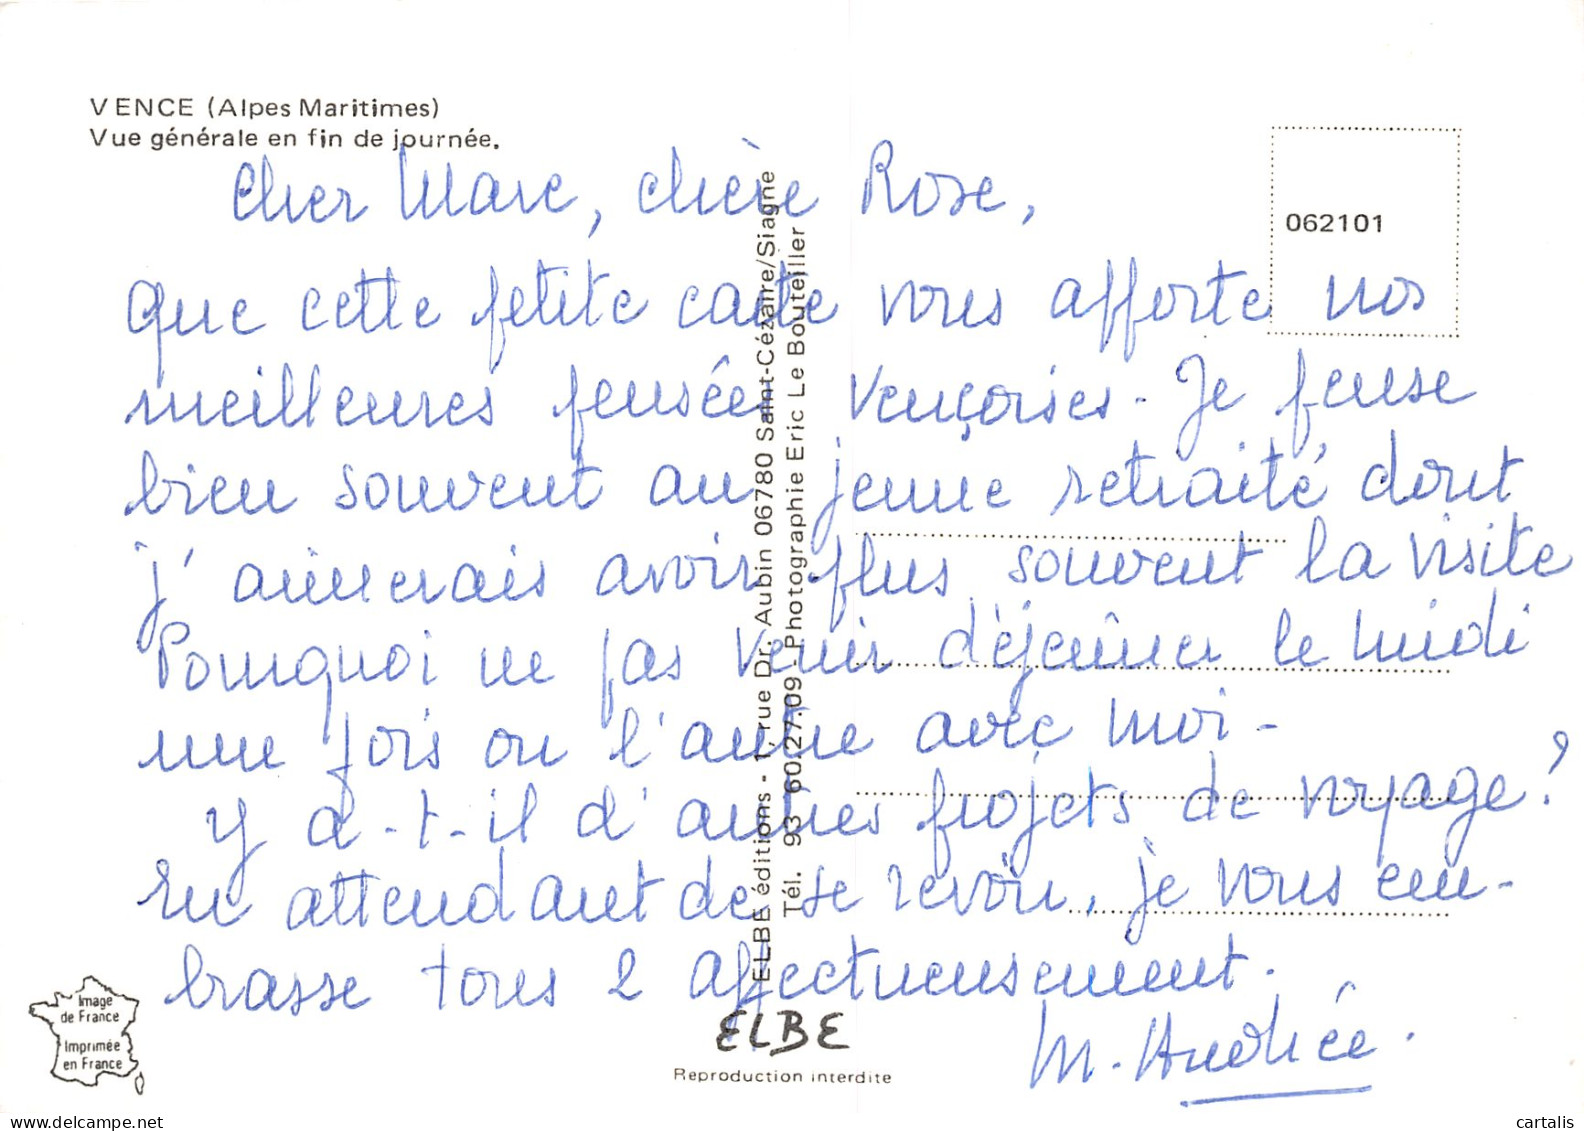 VENCE (Alpes Maritimes)
Vue générale en fin de journée.
Cher Marc, chère Rose,
que cette petite carte vous apporte nos
meilleures pensées Vençoises. Je pense
bien souvent au jeune retraité dont
j'aimerais avoir plus souvent la visite
Pourquoi ne pas venir déjeûner le midi
une fois ou l'autre avec moi -
Y a-t-il d'autres projets de voyage?
En attendant de se revoir, je vous em-
brasse tous 2 affectueusement.
M. Andrée.
062101
ELBE éditions - 1, rue Dr. Aubin 06780 Saint-Cézaire/Siagne
Tél. 93 60.27.09 - Photographie Eric Le Bouteiller
ELBE
Reproduction interdite
Image
de France
Imprimée
en France
cartalis